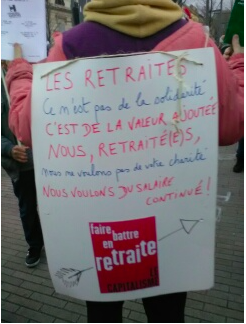 LES RETRAITES
Ce n'est pas de la solidarité
C'EST DE LA VALEUR AJOUTÉE
NOUS, RETRAITÉ(E)S,
Nous ne voulons pas de votre charité
NOUS VOULONS DU SALAIRE
CONTINUÉ !
faire
battre
en
retraite
LE
CAPITALISME